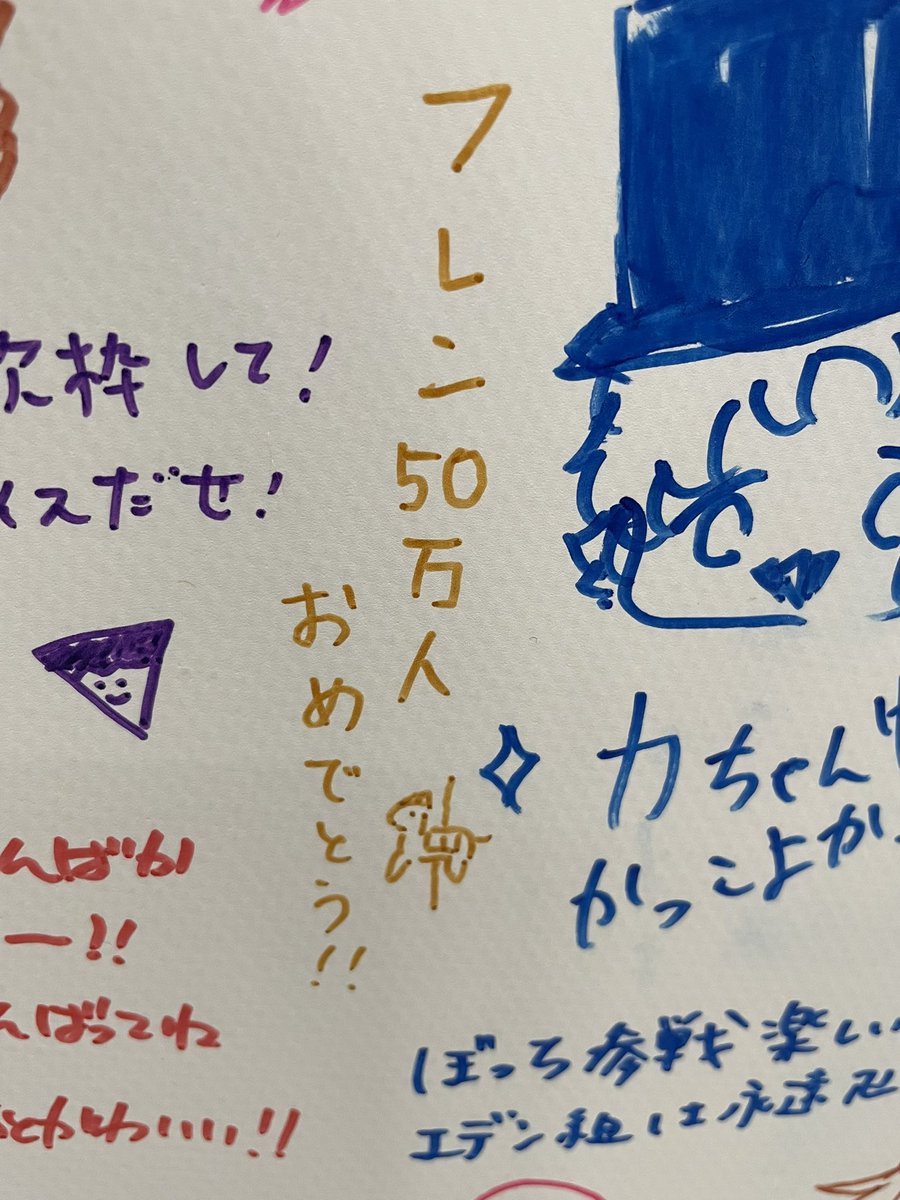 フレン50万人
おめでとう!!
欠枠して!
イスだぜ!
んばか
ー!!
んばってね
とかわいい!!
力ちゃん
かっこよか
ぼっち参戦楽しい
エデン組は永遠卍